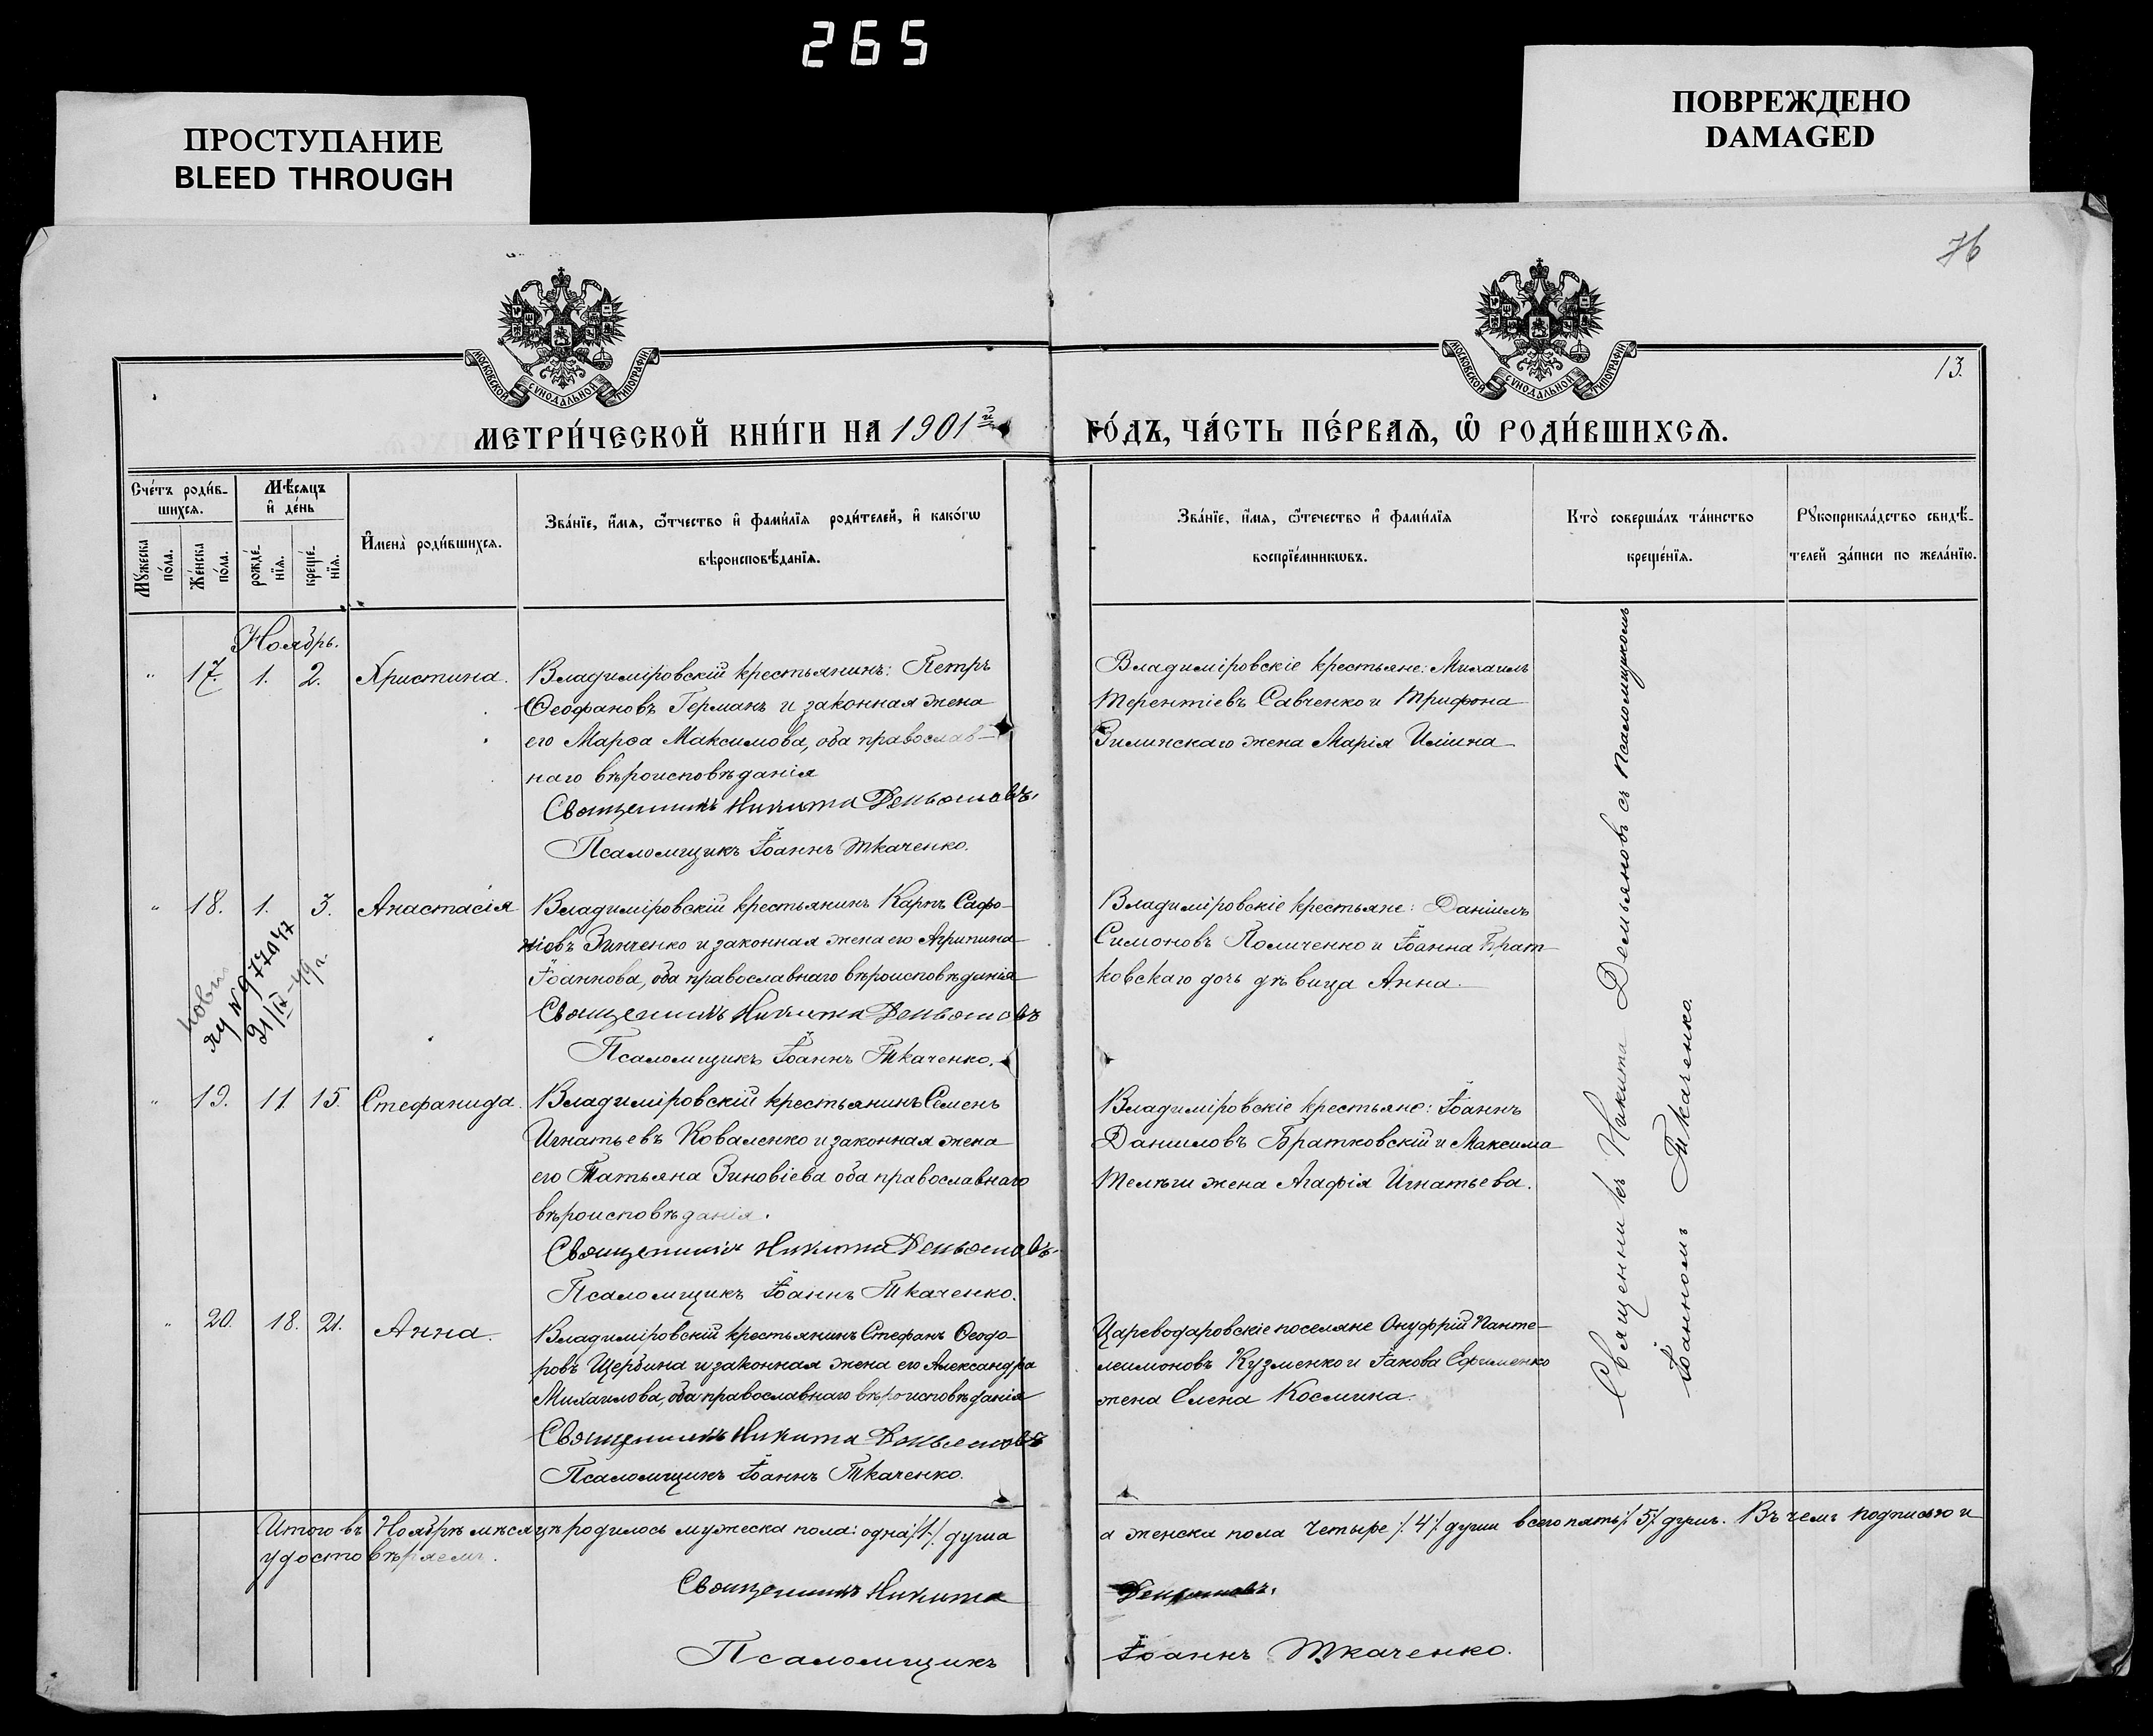 265
ПРОСТУПАНИЕ
BLEED THROUGH
ПОВРЕЖДЕНО
DAMAGED
76
МОСКОВСКОЙ СѴНОДАЛЬНОЙ ТИПОГРАФІИ
МОСКОВСКОЙ СѴНОДАЛЬНОЙ ТИПОГРАФІИ
13.
МЕТРИ́ЧЕСКОЙ КНИ́ГИ НА 1901й
ГО́ДЪ, ЧА́СТЬ ПЕ́РВАѦ, Ѡ҆ РОДИ́ВШИХСѦ.
Сче́тъ роди́в-
шихсѧ.
Мꙋ́жеска
по́ла.
Же́нска
по́ла.
Мѣ́сѧцъ
и҆ де́нь
рожде́-
нїѧ.
креще́-
нїѧ.
И҆мена̀ роди́вшихсѧ.
Зва́нїе, и҆́мѧ, ѻ҆́тчество и҆ фами́лїѧ роди́телей, и҆ како́гѡ
вѣроисповѣ́данїѧ.
Зва́нїе, и҆́мѧ, ѻ҆́течество и҆ фами́лїѧ
воспрїе́мникѡвъ.
Кто̀ соверша́лъ та́инство
креще́нїѧ.
Рꙋкоприкла́дство свидѣ́-
телей за́писи по жела́нїю.
Ноябрь.
" 17. 1. 2. Христина. Владиміровскій крестьянинъ: Петръ
Ѳеофановъ Германъ и законная жена
его Марѳа Максимова, оба православ-
наго вѣроисповѣданія
Священникъ Никита Демьяновъ.
Псаломщикъ Іоаннъ Ткаченко.
Владиміровскіе крестьяне: Михаилъ
Терентіевъ Савченко и Трифона
Зилинскаго жена Марія Иліина
" 18. 1. 3. Анастасія Владиміровскій крестьянинъ Карпъ Сафо-
ніовъ Зинченко и законная жена его Агрипина
Іоаннова, оба православнаго вѣроисповѣданія
Священникъ Никита Демьяновъ
Псаломщикъ Іоаннъ Ткаченко.
21/IX-49г.
Владиміровскіе крестьяне: Даніилъ
Симоновъ Поличенко и Іоанна Брат-
ковскаго дочь дѣвица Анна.
" 19. 11. 15. Стефанида. Владиміровскій крестьянинъ Семенъ
Игнатьевъ Коваленко и законная жена
его Татьяна Зиновіева оба православнаго
вѣроисповѣданія.
Священникъ Никита Демьяновъ.
Псаломщикъ Іоаннъ Ткаченко.
Владиміровскіе крестьяне: Іоаннъ
Даниловъ Братковскій и Максима
Телѣги жена Агафія Игнатьева.
" 20. 18. 21. Анна. Владиміровскій крестьянинъ Стефанъ Ѳеодо-
ровъ Щербина и законная жена его Александра
Михаилова, оба православнаго вѣроисповѣданія
Священникъ Никита Демьяновъ
Псаломщикъ Іоаннъ Ткаченко.
Цареводаровскіе поселяне Онуфрій Панте-
леимоновъ Кузменко и Іакова Ефименко
жена Елена Космина.
Священникъ Никита Демьяновъ съ псаломщикомъ
Іоанномъ Ткаченко.
Итого въ Ноябрѣ мѣсяцѣ родилось мужеска пола: одна /1/. душа
а женска пола четыре /.4./ души всего пять /.5/. душъ. Въ чемъ подписью и
удостовѣряемъ.
Священникъ Никита Демьяновъ.
Псаломщикъ Іоаннъ Ткаченко.